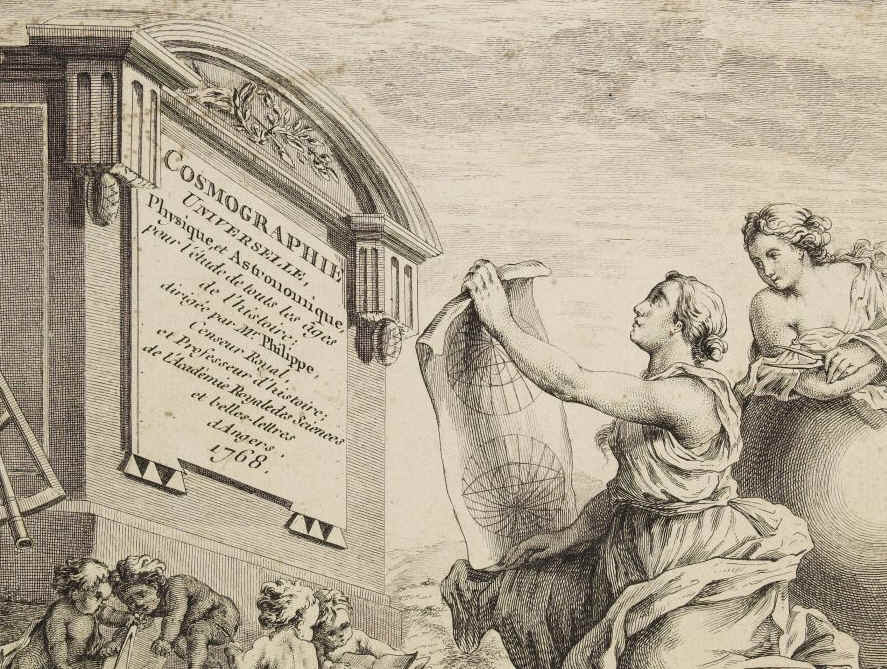 COSMOGRAPHIE
UNIVERSELLE,
Physique, et Astronomique,
pour l'étude de touts les âges
de l'histoire;
dirigée par Mr. Philippe,
Censeur Royal,
et Professeur d'histoire;
de L'Académie Royale des Sciences
et belles-lettres
d'Angers.
1768.